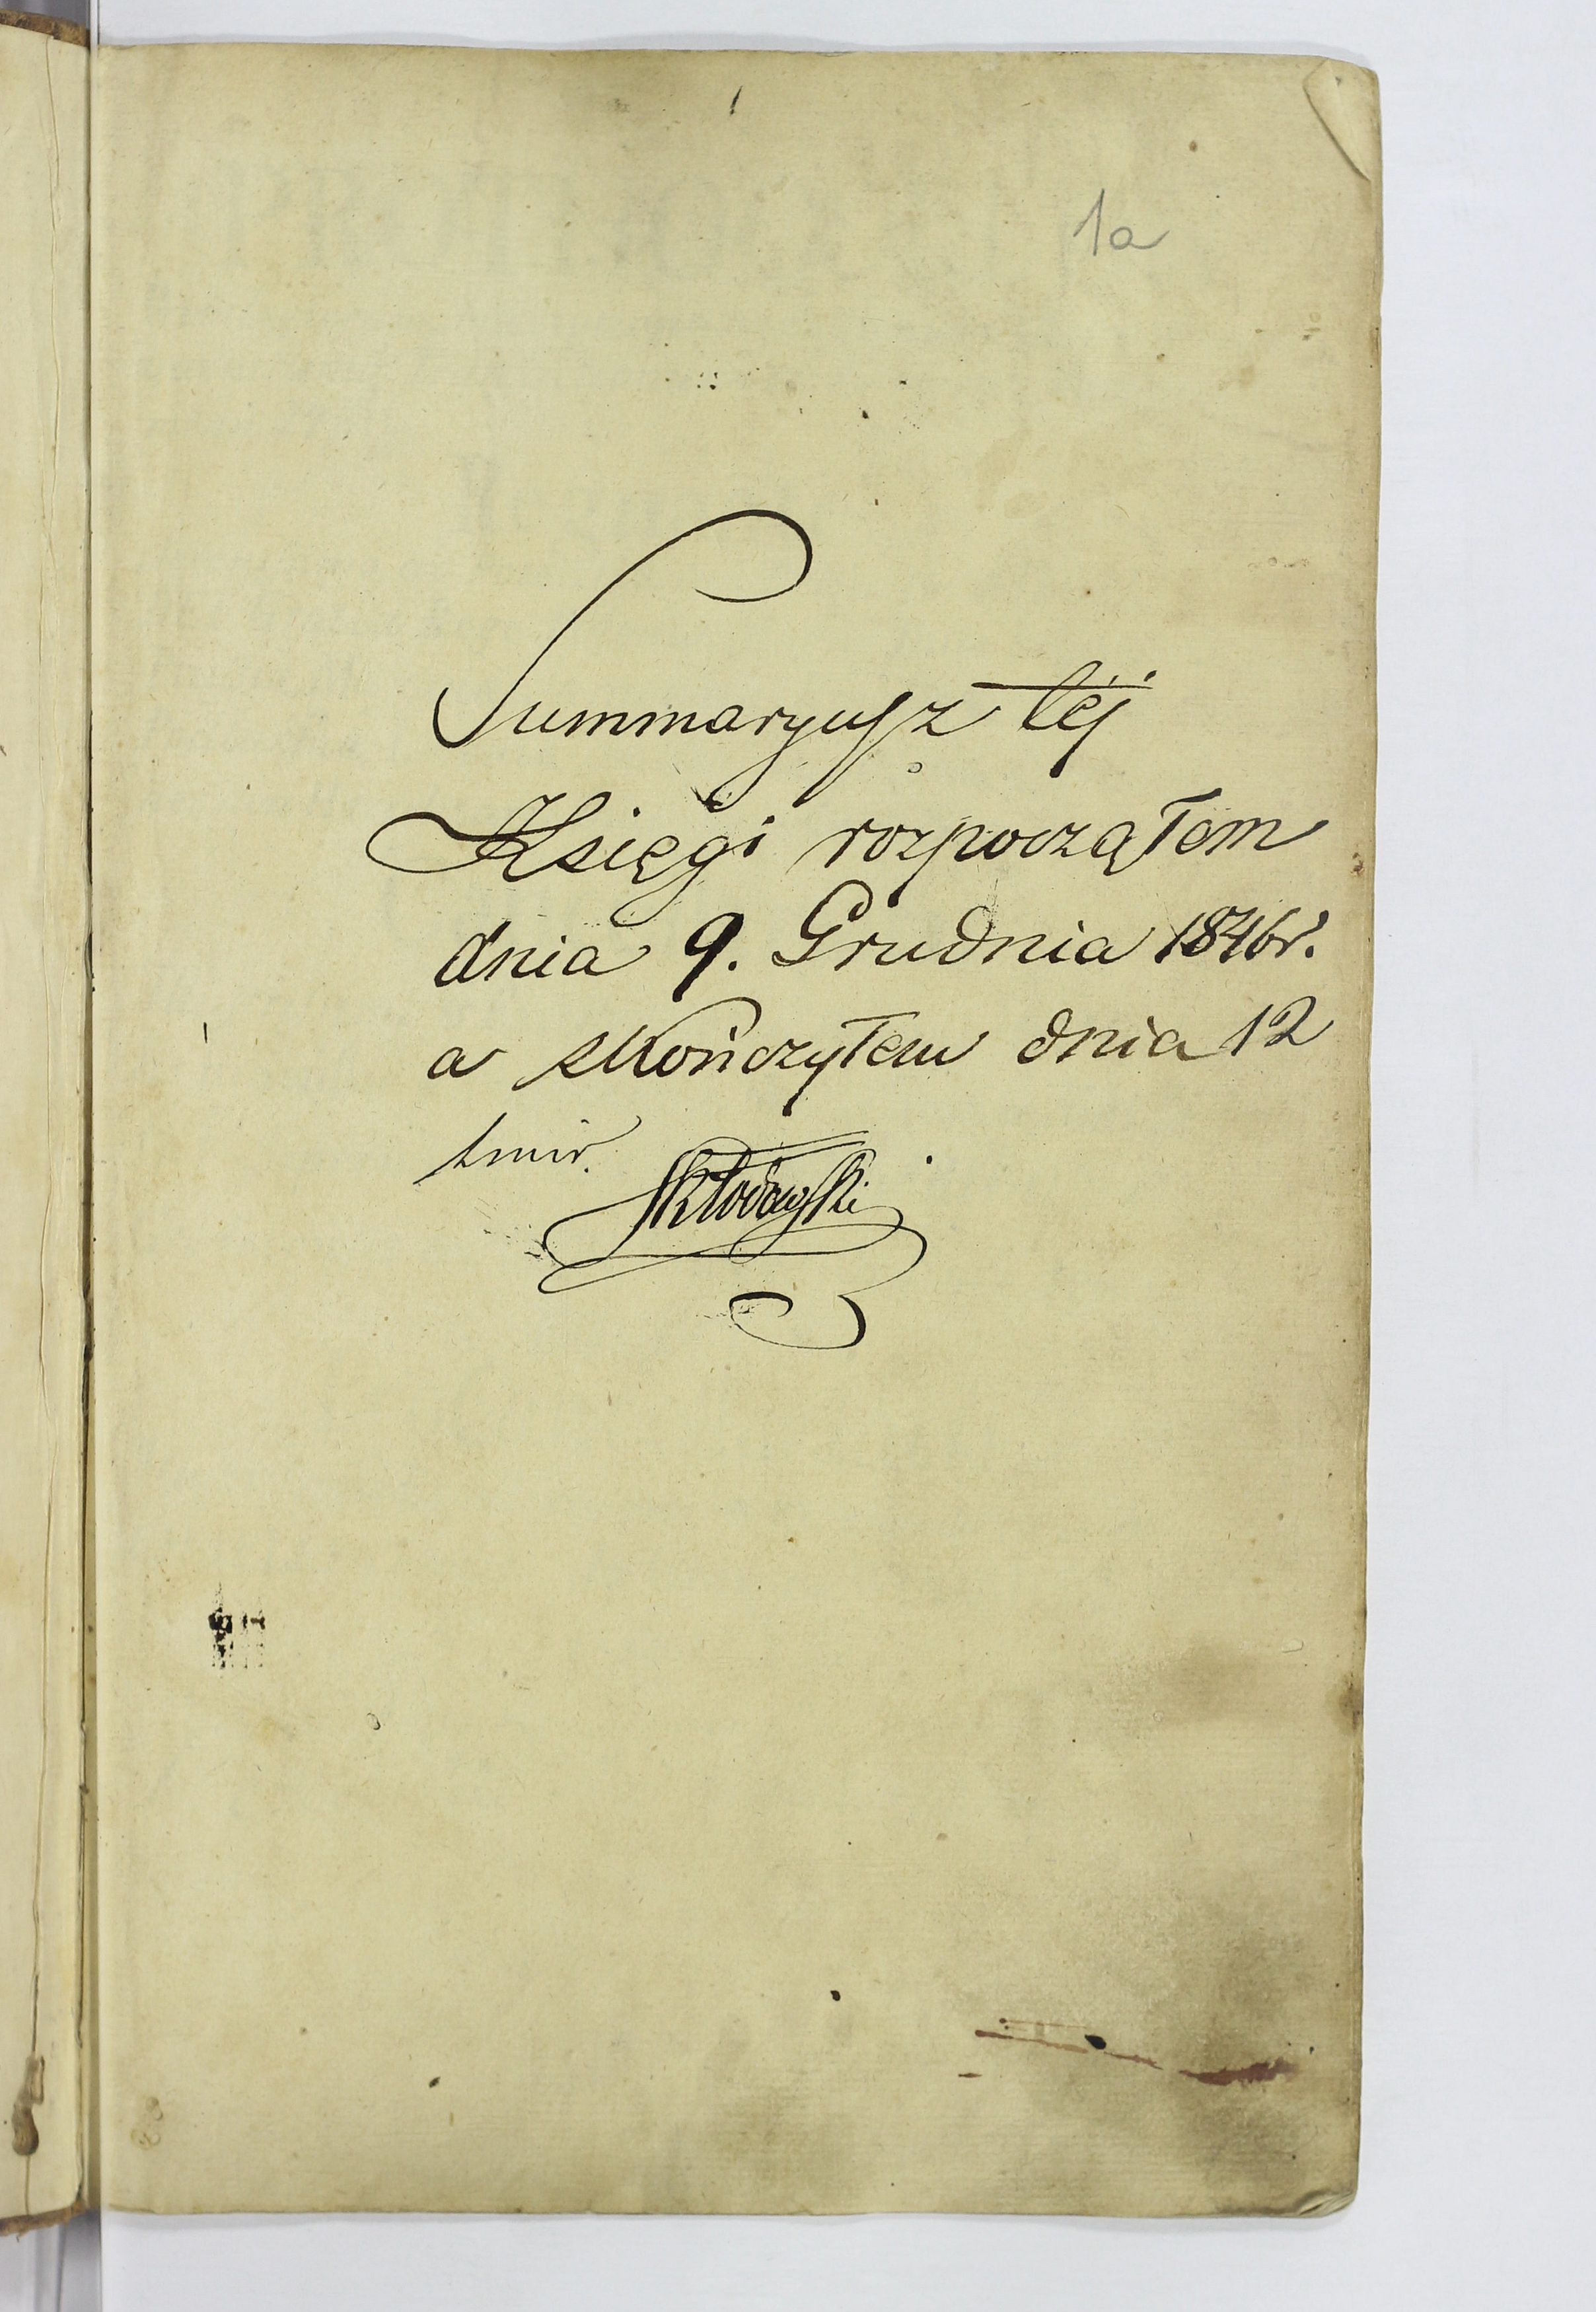 1a
Summaryusz téj
Księgi rozpocząłem
dnia 9. Grudnia 1846r.
a skończyłem dnia 12
tmir.
Skłodowski